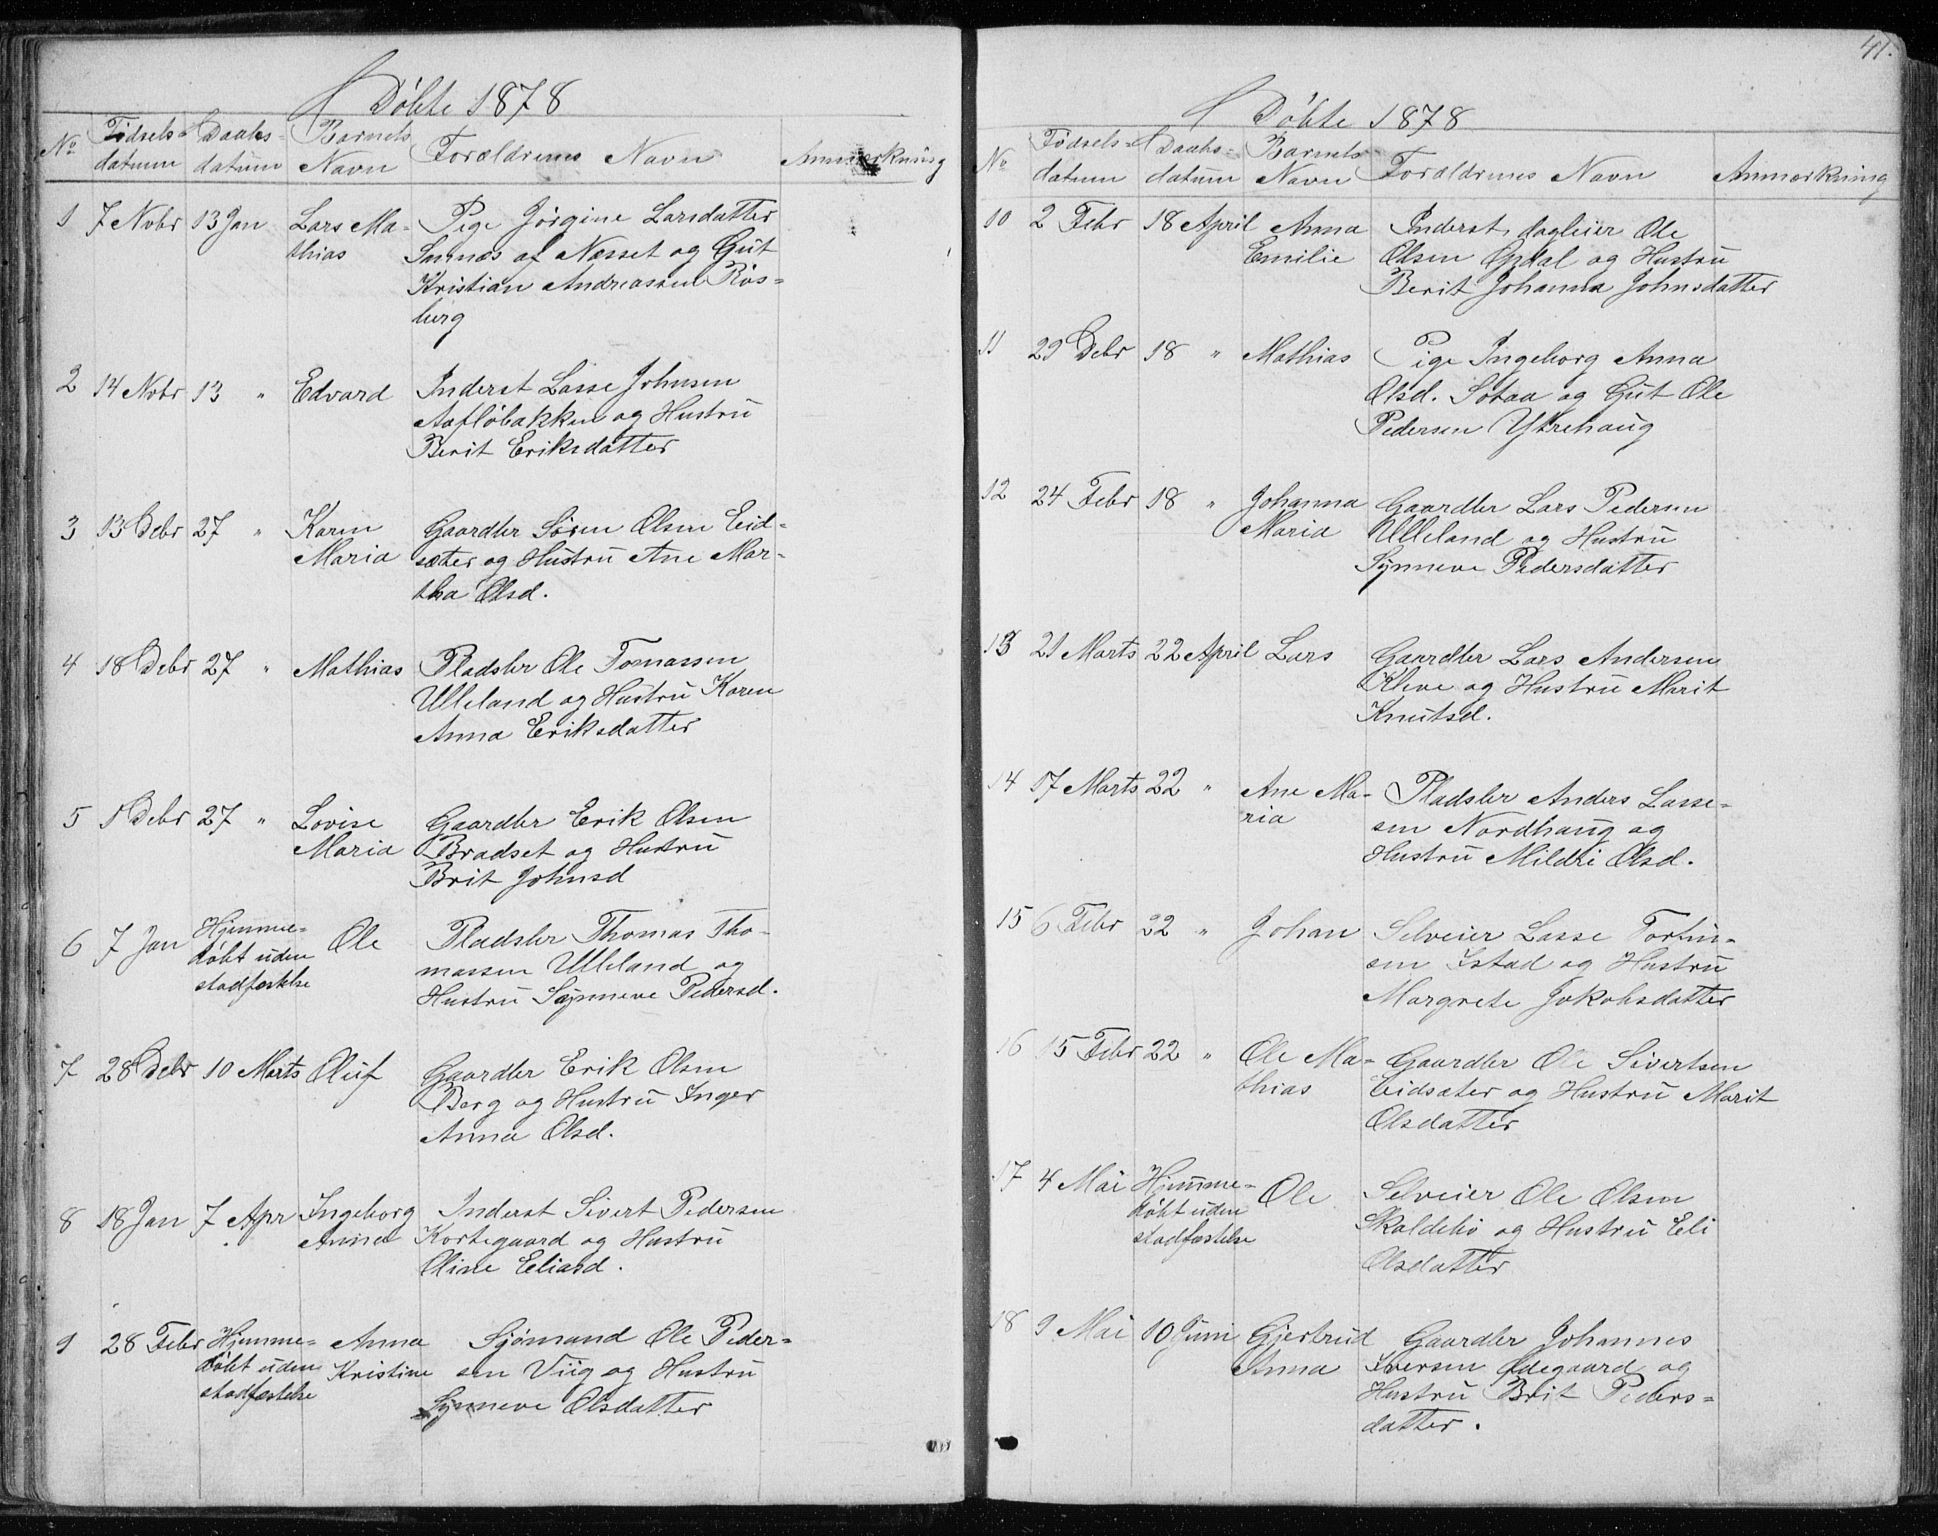 Døbte 1878
No Fødsels- Daabs- Barnets Forældrenes Navn Anmærkning
datum datum Navn
1 7 Novbr 13 Jan Lars Ma- Pige Jørgine Larsdatter
thias Sannæs af Næsset og Gut
Kristian Andreassen Røs-
berg
2 14 Novbr 13 " Edvard Inderst Lasse Johnsen
Aafløbakken og Hustru
Berit Eriksdatter
3 13 Debr 27 " Karen Gaardbr Søren Olsen Eid-
Maria sæter og Hustru Ane Mar-
tha Olsd.
4 18 Debr 27 " Mathias Pladsbr Ole Tomassen
Ulleland og Hustru Karen
Anna Eriksdatter
5 1 Debr 27 " Lovise Gaardbr Erik Olsen
Maria Bradset og Hustru
Brit Johnsd
6 7 Jan Hjemme- Ole Pladsbr Thomas Tho-
døbt uden massen Ulleland og
stadfæstelse Hustru Synneve Pedersd.
7 28 Debr 10 Marts Oluf Gaardbr Erik Olsen
Berg og Hustru Inger
Anna Olsd.
8 18 Jan 7 Apr Ingeborg Inderst Sivert Pedersen
Anna Kortegaard og Hustru
Oline Eliasd.
9 28 Febr Hjemme- Anna Sjømand Ole Peder-
døbt uden Kristine sen Viig og Hustru
stadfæstelse Synneve Olsdatter
41.
Døbte 1878
No Fødsels- Daabs- Barnets Forældrenes Navn Anmærkning
datum datum Navn
10 2 Febr 18 April Anna Inderst, dagleier Ole
Emilie Olsen Opdal og Hustru
Berit Johanna Johnsdatter
11 29 Debr 18 " Mathias Pige Ingeborg Anna
Olsd. Sotaa og Gut Ole
Pedersen Ytrehaug
12 24 Febr 18 " Johanna Gaardbr Lars Pedersen
Maria Ulleland og Hustru
Synneve Pedersdatter
13 21 Marts 22 April Lars Gaardbr Lars Andersen
Kleve og Hustru Marit
Knutsd.
14 17 Marts 22 " Ane Ma- Pladsbr Anders Lasse-
ria sen Nordhaug og
Hustru Mildri Olsd.
15 6 Febr 22 " Johan Selveier Lasse Tortin-
sen Istad og Hustru
Margrete Jakobsdatter
16 15 Febr 22 " Ole Ma- Gaardbr Ole Sivertsen
thias Eidsæter og Hustru Marit
Olsdatter
17 4 Mai Hjemme- Ole Selveier Ole Olsen
døbt uden Skaldebø og Hustru Eli
stadfæstelse Olsdatter
18 9 Mai 10 Juni Gjertrud Gaardbr Johannes
Anna Iversen Ødegaard og
Hustru Brit Peders-
datter.